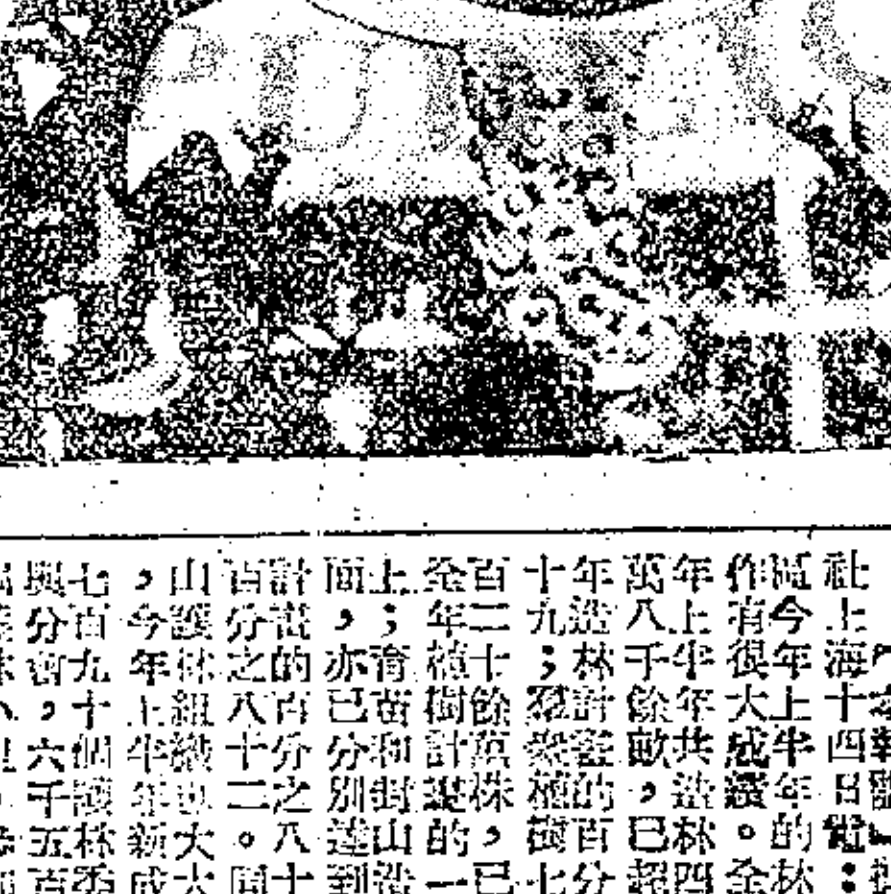 社上海十四日電：
區今年上半年的林
作有很大成績。全
年上半年共造林四
萬八千餘畝，已超
年造林計的百分
十九；羣衆植樹七
百二十餘萬株，已
全年植樹計的一
上；育苗和封山造
面，亦已分別達到
計畫的百分之八十
百分之八十二。同
山護林組織也大大
，今年上半年新成
七百九十個護林委
與分會，六千五百